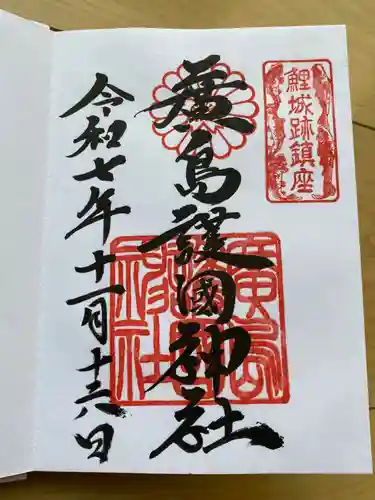 鯉城跡鎮座
廣島護國神社
令和七年十一月十六日
廣島
護國
神社